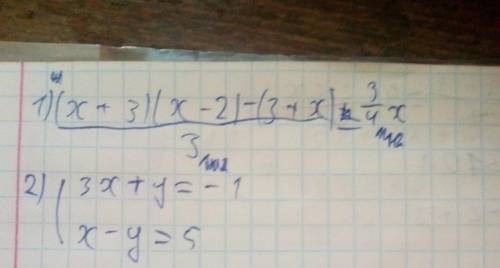 1) (x + 3)(x - 2) - (3 + x) = 3/4 x
3
2) { 3x + y = - 1
x - y = 5